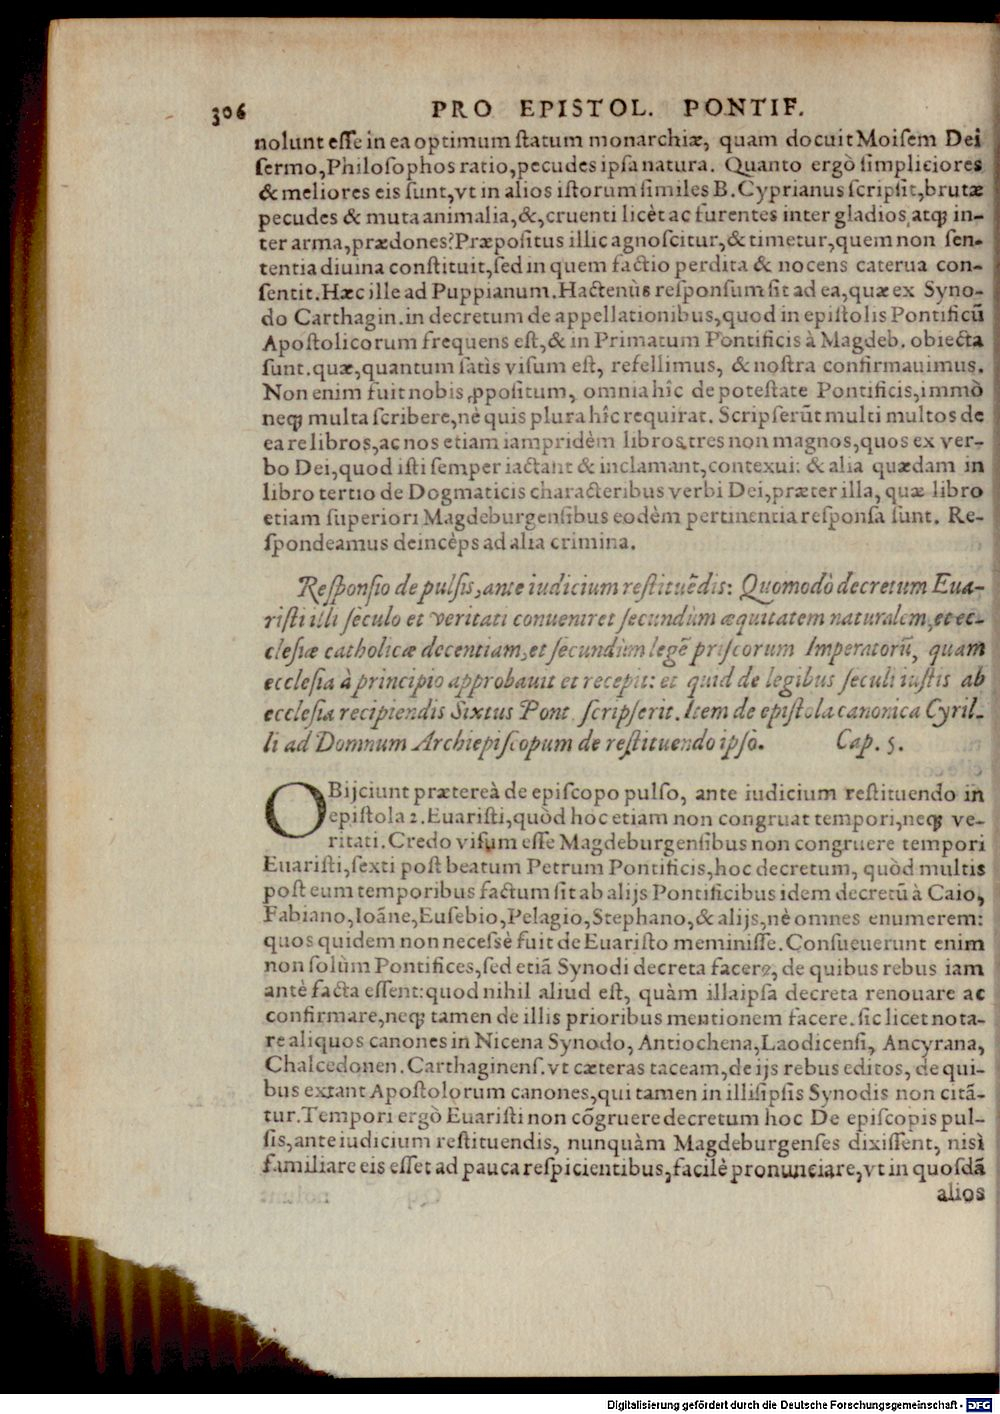 306 PRO EPISTOL. PONTIF.
nolunt eſſe in ea optimum ſtatum monarchiæ, quam docuit Moiſem Dei
ſermo, Philoſophos ratio, pecudes ipſa natura. Quanto ergò ſimpliciores
& meliores eis ſunt, vt in alios iſtorum ſimiles B. Cyprianus ſcripſit, brutæ
pecudes & muta animalia, &, cruenti licèt ac furentes inter gladios atqꝫ in-
ter arma, prædones? Præpoſitus illic agnoſcitur, & timetur, quem non ſen-
tentia diuina conſtituit, ſed in quem factio perdita & nocens caterua con-
ſentit. Hæc ille ad Puppianum. Hactenùs reſponſum ſit ad ea, quæ ex Syno-
do Carthagin. in decretum de appellationibus, quod in epiſtolis Pontificū
Apoſtolicorum frequens eſt, & in Primatum Pontificis à Magdeb. obiecta
ſunt. quæ, quantum ſatìs viſum eſt, refellimus, & noſtra confirmauimus.
Non enim fuit nobis ꝓpoſitum, omnia hîc de poteſtate Pontificis, immò
neqꝫ multa ſcribere, nè quis plura hîc requirat. Scripſerūt multi multos de
ea re libros, ac nos etiam iampridèm libros tres non magnos, quos ex ver-
bo Dei, quod iſti ſemper iactant & inclamant, contexui: & alia quædam in
libro tertio de Dogmaticis characteribus verbi Dei, præter illa, quæ libro
etiam ſuperiori Magdeburgenſibus eodèm pertinentia reſponſa ſunt. Re-
ſpondeamus deincèps ad alia crimina.
Reſponſio de pulſis, ante iudicium reſtituēdis: Quomodò decretum Eua-
riſti illi ſéculo et veritati conueniret ſecundùm æquitatem naturalem, et ec-
cleſiæ catholicæ decentiam, et ſecundùm legē priſcorum Imperatorū, quam
eccleſia à principio approbauit et recepit: et quid de legibus ſeculi iuſtis ab
eccleſia recipiendis Sixtus Pont. ſcripſerit. Item de epiſtola canonica Cyril-
li ad Domnum Archiepiſcopum de reſtituendo ipſo. Cap. 5.
OBijciunt prætereà de epiſcopo pulſo, ante iudicium reſtituendo in
epiſtola 2. Euariſti, quòd hoc etiam non congruat tempori, neqꝫ ve-
ritati. Credo viſum eſſe Magdeburgenſibus non congruere tempori
Euariſti, ſexti poſt beatum Petrum Pontificis, hoc decretum, quòd multis
poſt eum temporibus factum ſit ab alijs Pontificibus idem decretū à Caio,
Fabiano, Ioāne, Euſebio, Pelagio, Stephano, & alijs, nè omnes enumerem:
quos quidem non neceſsè fuit de Euariſto meminiſſe. Conſueuerunt enim
non ſolùm Pontifices, ſed etiā Synodi decreta facere, de quibus rebus iam
antè facta eſſent: quod nihil aliud eſt, quàm illa ipſa decreta renouare ac
confirmare, neqꝫ tamen de illis prioribus mentionem facere. ſic licet nota-
re aliquos canones in Nicena Synodo, Antiochena, Laodicenſi, Ancyrana,
Chalcedonen. Carthaginenſ. vt cæteras taceam, de ijs rebus editos, de qui-
bus extant Apoſtolorum canones, qui tamen in illis ipſis Synodis non citā-
tur. Tempori ergò Euariſti non cōgruere decretum hoc De epiſcopis pul-
ſis, ante iudicium reſtituendis, nunquàm Magdeburgenſes dixiſſent, niſi
familiare eis eſſet ad pauca reſpicientibus, facilè pronunciare, vt in quoſdā
alios
Digitalisierung gefördert durch die Deutsche Forschungsgemeinschaft - DFG